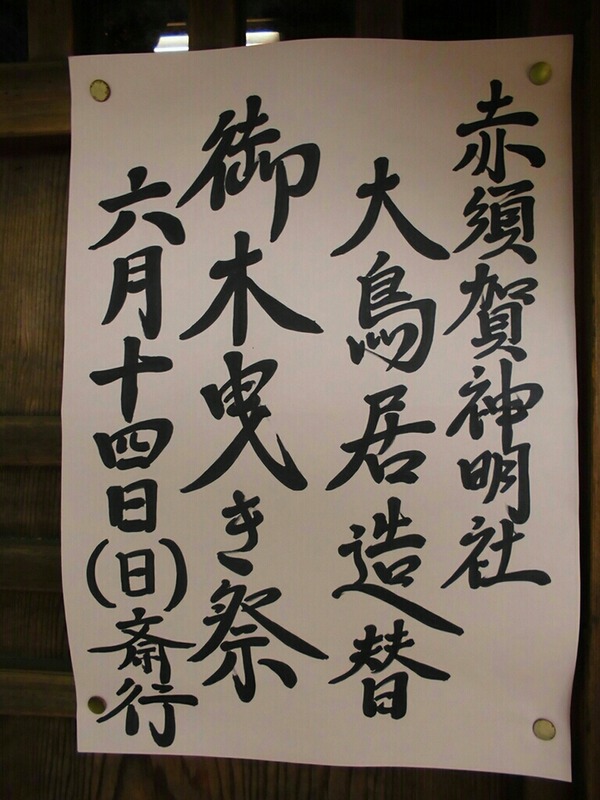 赤須賀神明社
大鳥居造替
御木曳き祭
六月十四日(日)斎行